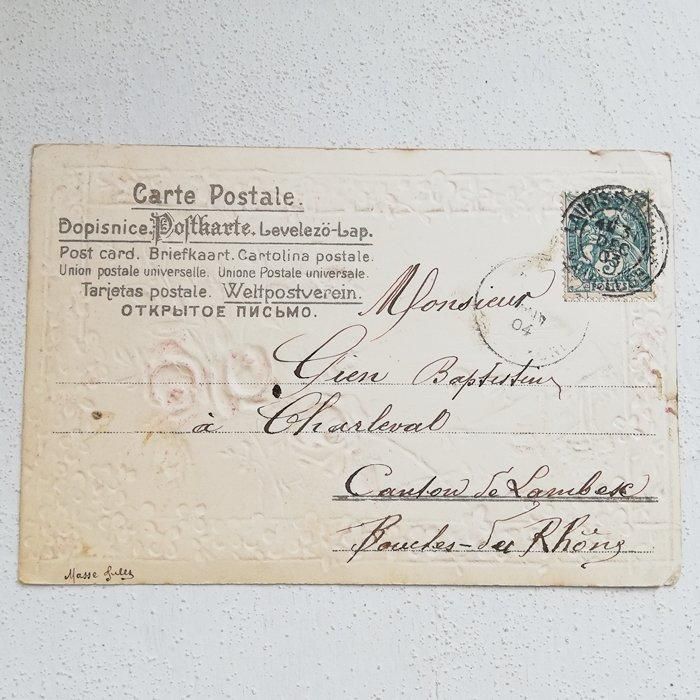 Carte Postale.
Dopisnice. Postkarte. Levelezö-Lap.
Post card. Briefkaart. Cartolina postale.
Union postale universelle. Unione Postale universale.
Tarjetas postale. Weltpostverein.
ОТКРЫТОЕ ПИСЬМО.
DEC
03
04
Monsieur
Gien Baptistin
à Charleval
Canton de Lambesc
Bouches-du Rhône
Masse Jules